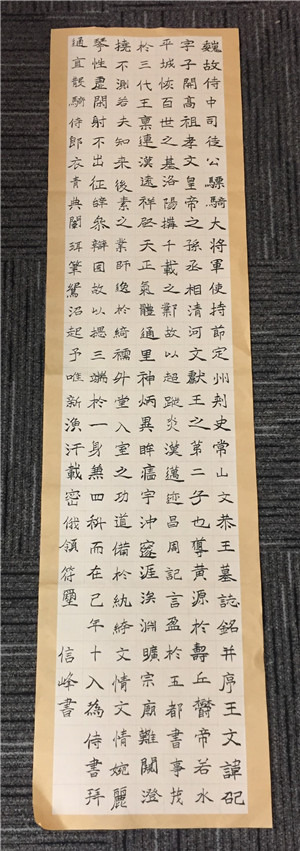 魏故侍中司徒公驃騎大將軍使持節定州刺史常山文恭王墓誌銘并序王文諱邵
字子開高祖孝文皇帝之孫丞相清河文獻王之第二子也導黃源於壽丘欝帝若水
平城恢百世之基洛陽搆千載之鄴故以超蹤炎漢邁迹昌周記言盈於五都書事茂
於三代王稟連漢遠祥啓天正氣體通里神炳異眸宇沖邃涯涘淵曠宗廟難闚澄
撓不測若夫知來後素之業師逸於綺襦升堂入室之功道備於紈綺文情文情婉麗
琴性虛閑射不出征辭參辯囿故以摽三端於一身兼四科而在己年十入為侍書拜
通直散騎侍郎衣青典闈珥筆鴛沼起予唯新渙汗載密俄領符璽 信峰書